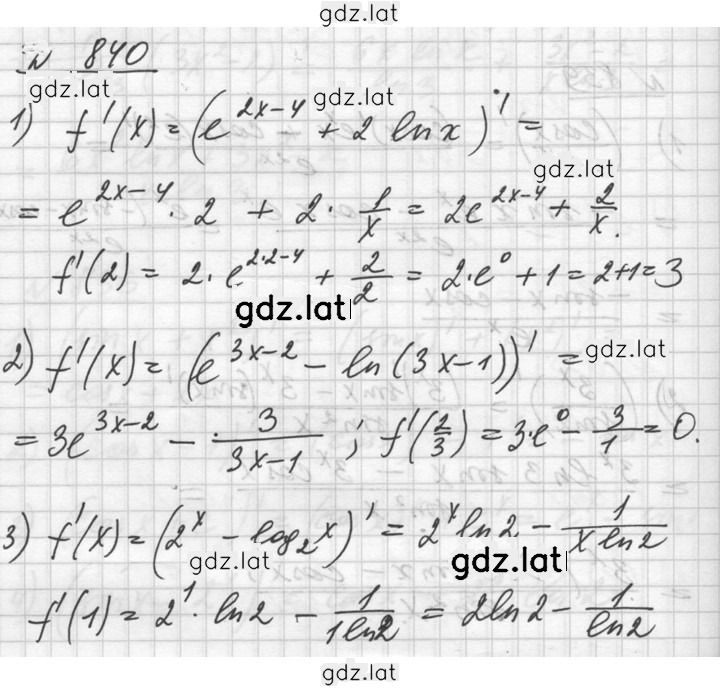 gdz.lat
№ 840
gdz.lat gdz.lat
1) f'(x) = (e^{2x-4} + 2 ln x)' =
gdz.lat
= e^{2x-4} · 2 + 2 · 1/x = 2e^{2x-4} + 2/x.
f'(2) = 2 · e^{2·2-4} + 2/2 = 2·e^0 + 1 = 2+1 = 3
gdz.lat
2) f'(x) = (e^{3x-2} - ln(3x-1))' =
gdz.lat
= 3e^{3x-2} - 3/(3x-1) ; f'(2/3) = 3·e^0 - 3/1 = 0.
3) f'(x) = (2^x - log_2 x)' = 2^x ln 2 - 1/(x ln 2)
gdz.lat gdz.lat
f'(1) = 2^1 · ln 2 - 1/(1 ln 2) = 2 ln 2 - 1/(ln 2)
gdz.lat